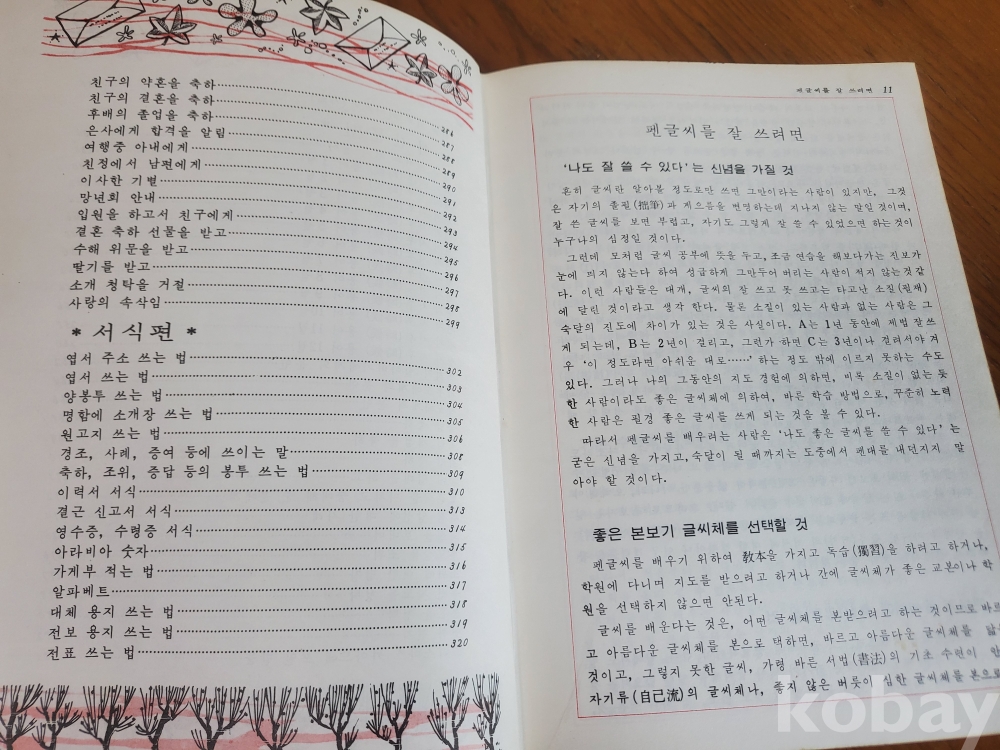 친구의 약혼을 축하 286
친구의 결혼을 축하 287
후배의 졸업을 축하 288
은사에게 합격을 알림 289
여행중 아내에게 290
친정에서 남편에게 291
이사한 기별 292
망년회 안내 293
입원을 하고서 친구에게 294
결혼 축하 선물을 받고 295
수해 위문을 받고 296
딸기를 받고 297
소개 청탁을 거절 298
사랑의 속삭임 299
* 서식편 *
엽서 주소 쓰는 법 302
엽서 쓰는 법 303
양봉투 쓰는 법 304
명함에 소개장 쓰는 법 305
원고지 쓰는 법 306
경조, 사례, 증여 등에 쓰이는 말 308
축하, 조위, 증답 등의 봉투 쓰는 법 309
이력서 서식 310
결근 신고서 서식 313
영수증, 수령증 서식 314
아라비아 숫자 315
가게부 적는 법 316
알파베트 317
대체 용지 쓰는 법 318
전보 용지 쓰는 법 319
전표 쓰는 법 320
펜글씨를 잘 쓰려면 11
펜글씨를 잘 쓰려면
‘나도 잘 쓸 수 있다’는 신념을 가질 것
흔히 글씨란 알아볼 정도로만 쓰면 그만이라는 사람이 있지만, 그것
은 자기의 졸필(拙筆)과 게으름을 변명하는데 지나지 않는 말일 것이며,
잘 쓴 글씨를 보면 부럽고, 자기도 그렇게 잘 쓸 수 있었으면 하는것이
누구나의 심정일 것이다.
그런데 모처럼 글씨 공부에 뜻을 두고, 조금 연습을 해보다가는 진보가
눈에 띄지 않는다 하여 성급하게 그만두어 버리는 사람이 적지 않는것같
다. 이런 사람들은 대개, 글씨의 잘 쓰고 못 쓰고는 타고난 소질(천재)
에 달린 것이라고 생각 한다. 물론 소질이 있는 사람과 없는 사람은 그
숙달의 진도에 차이가 있는 것은 사실이다. A는 1년 동안에 제법 잘쓰
게 되는데, B는 2년이 걸리고, 그런가 하면 C는 3년이나 걸려서야 겨
우 ‘이 정도라면 아쉬운 대로……’ 하는 정도 밖에 이르지 못하는 수도
있다. 그러나 나의 그동안의 지도 경험에 의하면, 비록 소질이 없는 듯
한 사람이라도 좋은 글씨체에 의하여, 바른 학습 방법으로, 꾸준히 노력
한 사람은 필경 좋은 글씨를 쓰게 되는 것을 볼 수 있다.
따라서 펜글씨를 배우려는 사람은 ‘나도 좋은 글씨를 쓸 수 있다’는
굳은 신념을 가지고, 숙달이 될 때까지는 도중에서 펜대를 내던지지 말
아야 할 것이다.
좋은 본보기 글씨체를 선택할 것
펜글씨를 배우기 위하여 敎本을 가지고 독습(獨習)을 하려고 하거나,
학원에 다니며 지도를 받으려고 하거나 간에 글씨체가 좋은 교본이나 학
원을 선택하지 않으면 안된다.
글씨를 배운다는 것은, 어떤 글씨체를 본받으려고 하는 것이므로 바르
고 아름다운 글씨체를 본으로 택하면, 바르고 아름다운 글씨체를 닮
것이고, 그렇지 못한 글씨, 가령 바른 서법(書法)의 기초 수련이 안
자기류(自己流)의 글씨체나, 좋지 않은 버릇이 심한 글씨체를 본으로
kobay